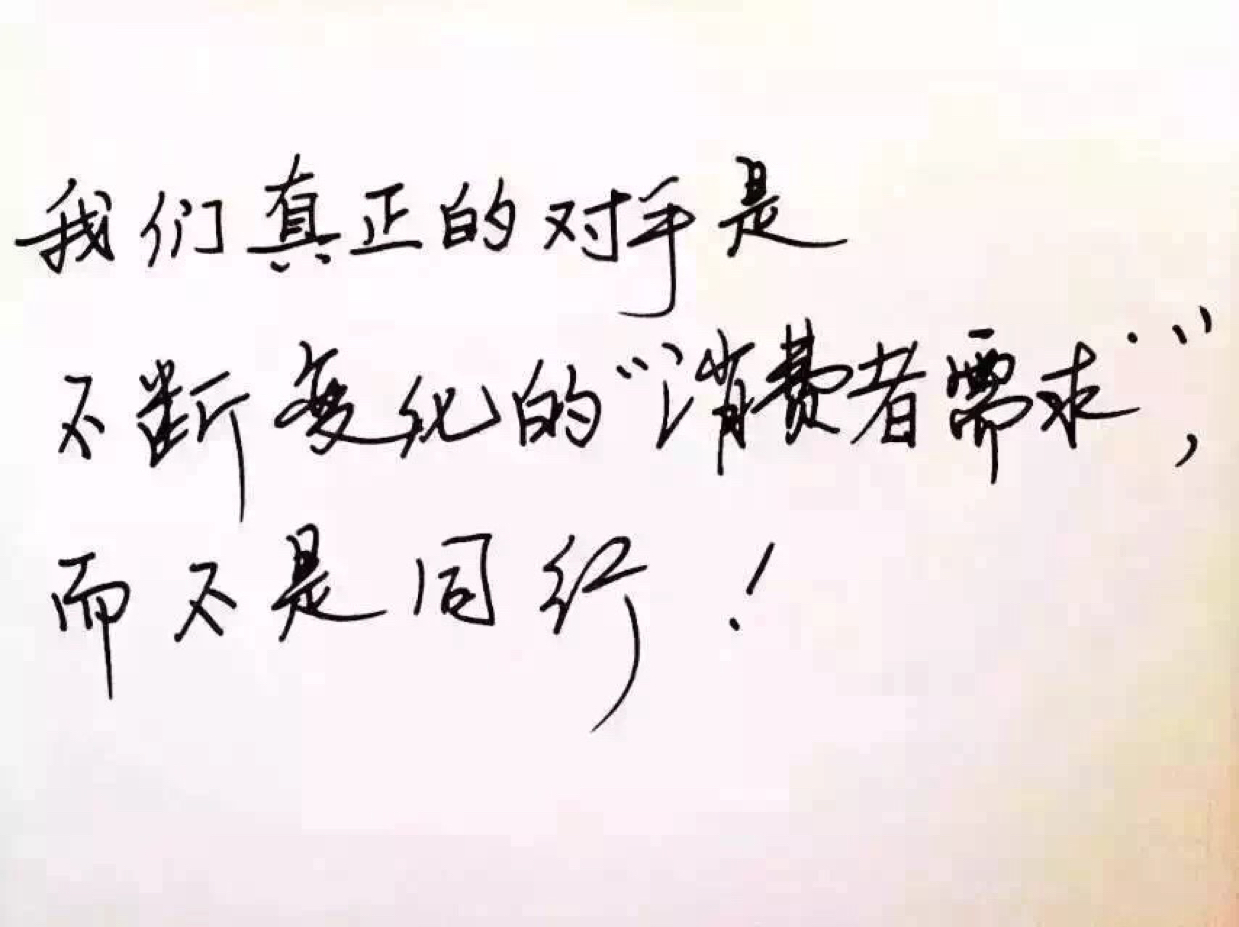 我们真正的对手是
不断变化的“消费者需求”，
而不是同行！